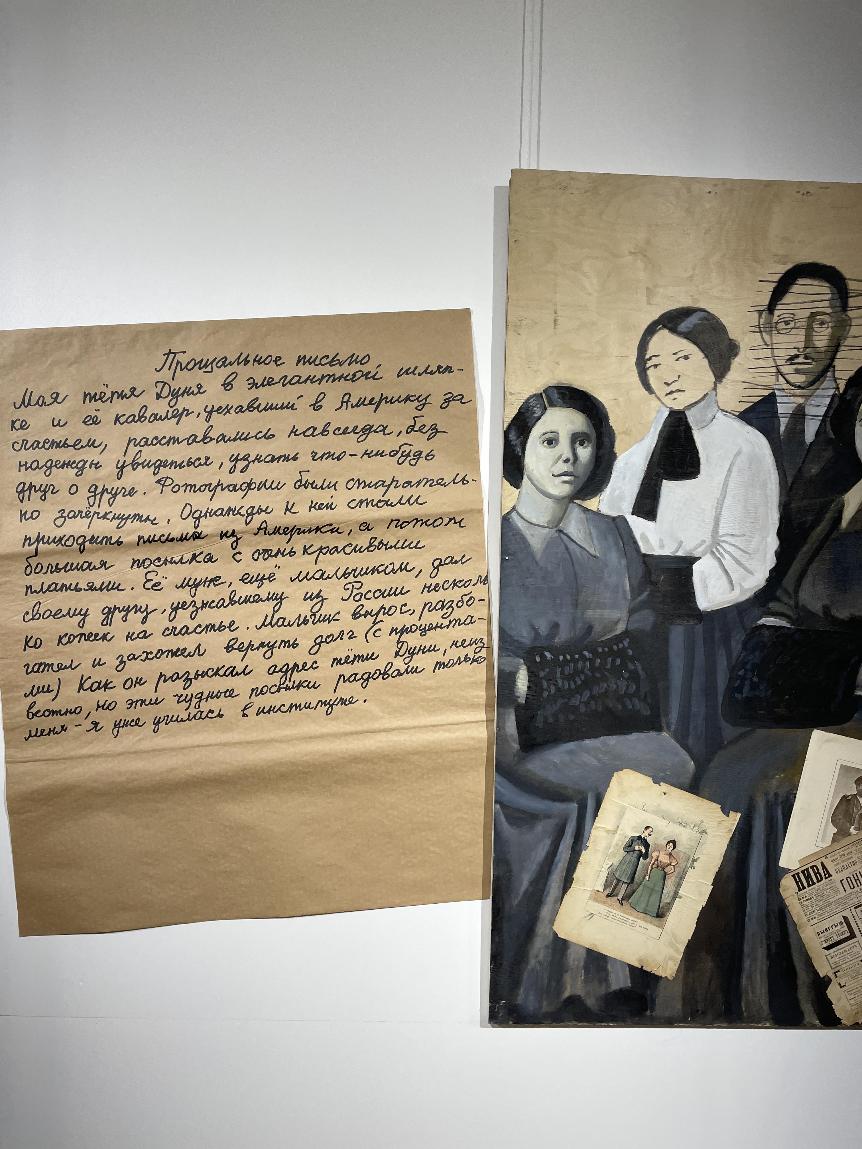 Прощальное письмо
Моя тётя Дуня в элегантной шляп-
ке и её кавалер, уехавший в Америку за
счастьем, расставались навсегда, без
надежды увидеться, узнать что-нибудь
друг о друге. Фотографии были старатель-
но зачёркнуты. Однажды к ней стали
приходить письма из Америки, а потом
большая посылка с очень красивыми
платьями. Её муж, ещё мальчиком, дал
своему другу, уезжавшему из России несколь
ко копеек на счастье. Мальчик вырос, разбо-
гател и захотел вернуть долг (с процента-
ми) Как он разыскал адрес тёти Дуни, неиз
вестно, но эти чудные посылки радовали только
меня - я уже училась в институте.
НИВА